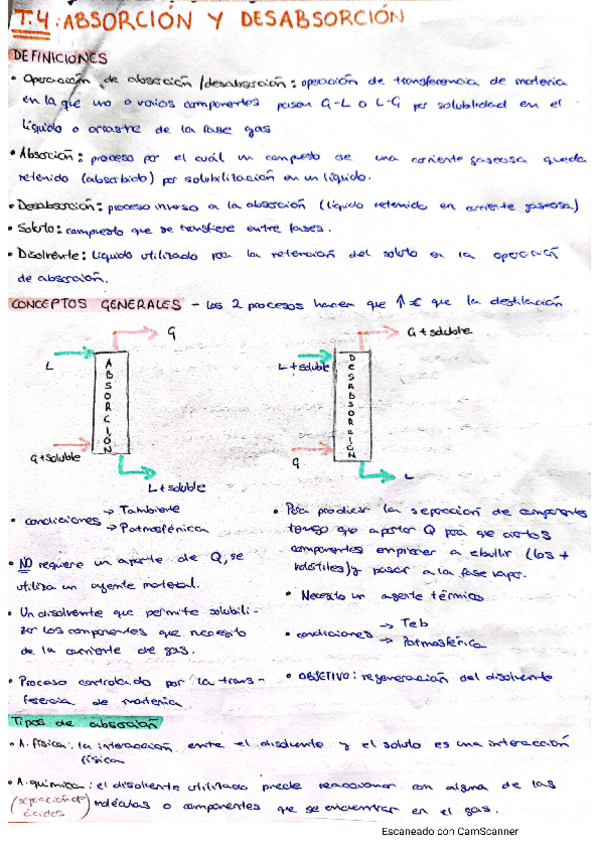 T.4: ABSORCIÓN Y DESABSORCIÓN
DEFINICIONES
• Operación de absorción/desabsorción: operación de transferencia de materia
en la que uno o varios componentes pasan G-L o L-G por solubilidad en el
líquido o arrastre de la fase gas
• Absorción: proceso por el cuál un compuesto de una corriente gaseosa queda
retenido (absorbido) por solubilización en un líquido.
• Desabsorción: proceso inverso a la absorción (líquido retenido en corriente gaseosa)
• Soluto: compuesto que se transfiere entre fases.
• Disolvente: líquido utilizado para la retención del soluto en la operación
de absorción.
CONCEPTOS GENERALES - los 2 procesos hacen que ↑ € que la destilación
G
L
ABSORCIÓN
G+soluble
L+soluble
G+soluble
L+soluble
DESABSORCIÓN
G
L
• condiciones → Tambiente
→ Patmosférica
• NO requiere un aporte de Q, se
utiliza un agente material.
• Un disolvente que permite solubili-
zar los componentes que necesito
de la corriente de gas.
• Proceso controlado por la trans-
ferencia de materia
• Para producir la separación de componentes
tengo que aportar Q para que ciertos
componentes empiecen a ebullir (los +
volátiles) y pasar a la fase vapor.
• Necesito un agente térmico
• condiciones → Teb
→ Patmosférica
• OBJETIVO: regeneración del disolvente
Tipos de absorción
• A. física: la interacción entre el disolvente y el soluto es una interacción
física
• A. química: el disolvente utilizado puede reaccionar con alguna de las
(separación de ácidos) moléculas o componentes que se encuentran en el gas.
Escaneado con CamScanner